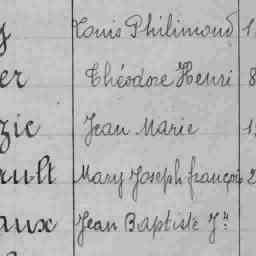 Louis Philimond 1
er Théodore Henri 8
zie Jean Marie 1
ault Mary Joseph françois 2
aux Jean Baptiste Jn